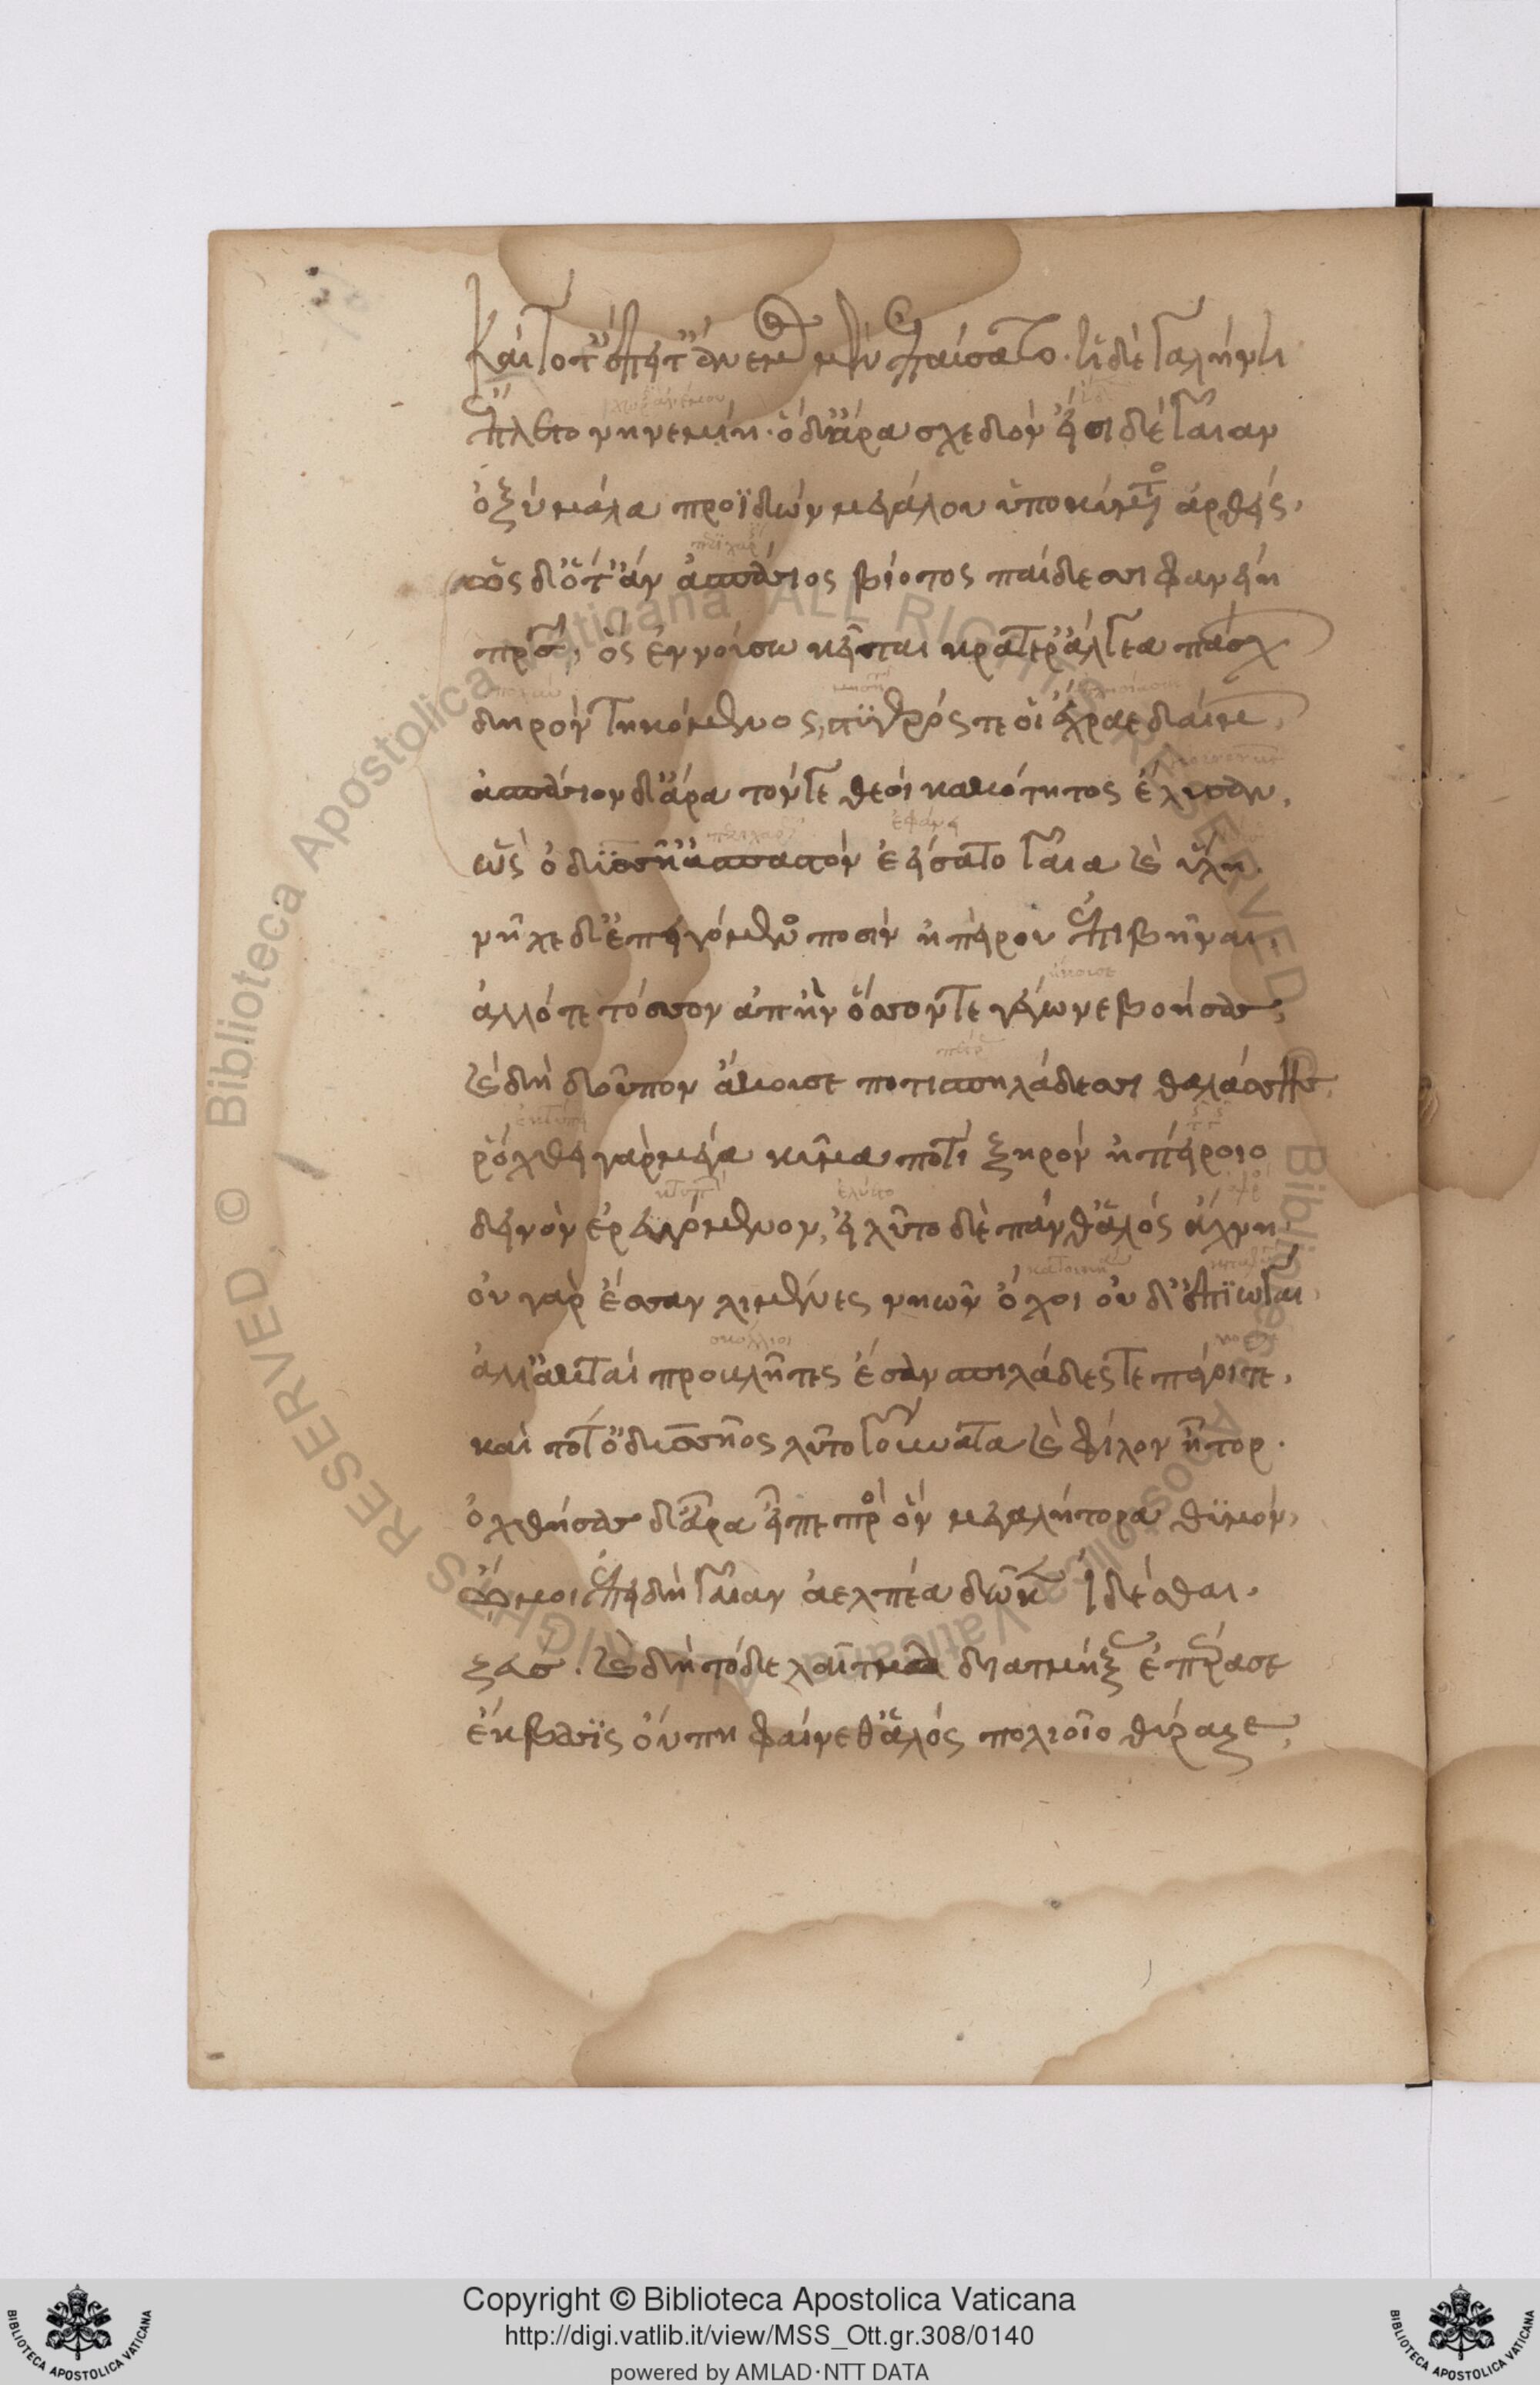 Καὶ τότ' ἔπειτ' ἄνεμος μὲν ἐπαύσατο. ἡ δὲ γαλήνη
ἔπλετο νηνεμίη· ὁ δ' ἄρα σχεδὸν εἴσιδε γαῖαν
ὀξὺ μάλα προϊδὼν μεγάλου ὑπὸ κύματος ἀρθείς.
ὡς δ' ὅτ' ἂν ἀσπάσιος βίοτος παίδεσσι φανείη
πατρός, ὃς ἐν νούσω κεῖται κρατέρ' ἄλγεα πάσχων
δηρὸν τηκόμενος, στυγερὸς δέ οἱ ἔχραε δαίμων,
ἀσπάσιον δ' ἄρα τόν γε θεοὶ κακότητος ἔλυσαν,
ὣς ὀδυσσῆ' ἀσπαστὸν ἐείσατο γαῖα καὶ ὕλη.
νῆχε δ' ἐπειγόμενος ποσὶν ἠπείρου ἐπιβῆναι.
ἀλλ' ὅτε τόσσον ἀπῆν ὅσσόν τε γέγωνε βοήσας,
καὶ δὴ δοῦπον ἄκουσε ποτὶ σπιλάδεσσι θαλάσσης.
ῥόχθει γὰρ μέγα κῦμα ποτὶ ξηρὸν ἠπείροιο
δεινὸν ἐρευγόμενον, εἴλυτο δὲ πάνθ' ἁλὸς ἄχνη
οὐ γὰρ ἔσαν λιμένες νηῶν ὄχοι οὐδ' ἐπϊωγαί
ἀλλ' ἀκταὶ προβλῆτες ἔσαν σπιλάδές τε πάγοι τε.
καὶ τότ' ὀδυσσῆος λύτο γούνατα καὶ φίλον ἦτορ.
ὀχθήσας δ' ἄρα εἶπε πρὸς ὃν μεγαλήτορα θυμόν,
ὤ μοι ἐπειδὴ γαῖαν ἀελπέα δῶκεν ἰδέσθαι.
ζεύς. καὶ δὴ τόδε λαῖτμα διατμήξας ἐπέρασα
ἔκβασις οὔπη φαίνεθ' ἁλὸς πολιοῖο θύραζε,
Copyright © Biblioteca Apostolica Vaticana
http://digi.vatlib.it/view/MSS_Ott.gr.308/0140
powered by AMLAD·NTT DATA